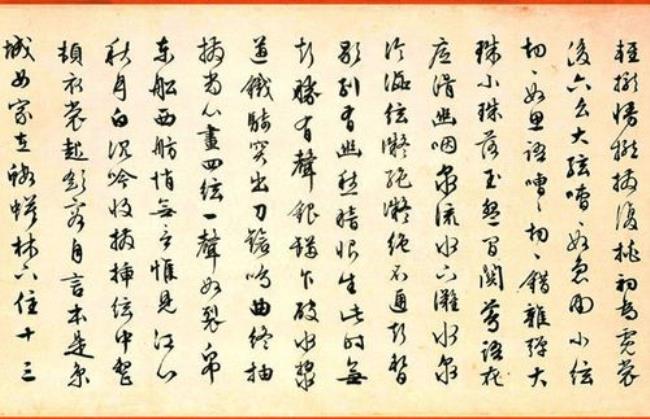 輕攏慢撚抹復挑初為霓裳
後六幺大絃嘈〻如急雨小絃
切〻如私語嘈〻切〻錯雜彈大
珠小珠落玉盤間關鶯語花
底滑幽咽泉流水下灘水泉
冷澀絃凝絕凝絕不通聲暫
歇別有幽愁暗恨生此時無
聲勝有聲銀瓶乍破水漿
迸鐵騎突出刀鎗鳴曲終抽
撥當心畫四絃一聲如裂帛
東船西舫悄無言惟見江心
秋月白沉吟收撥插絃中整
頓衣裳起斂容自言本是京
城女家在蝦蟆林下住十三